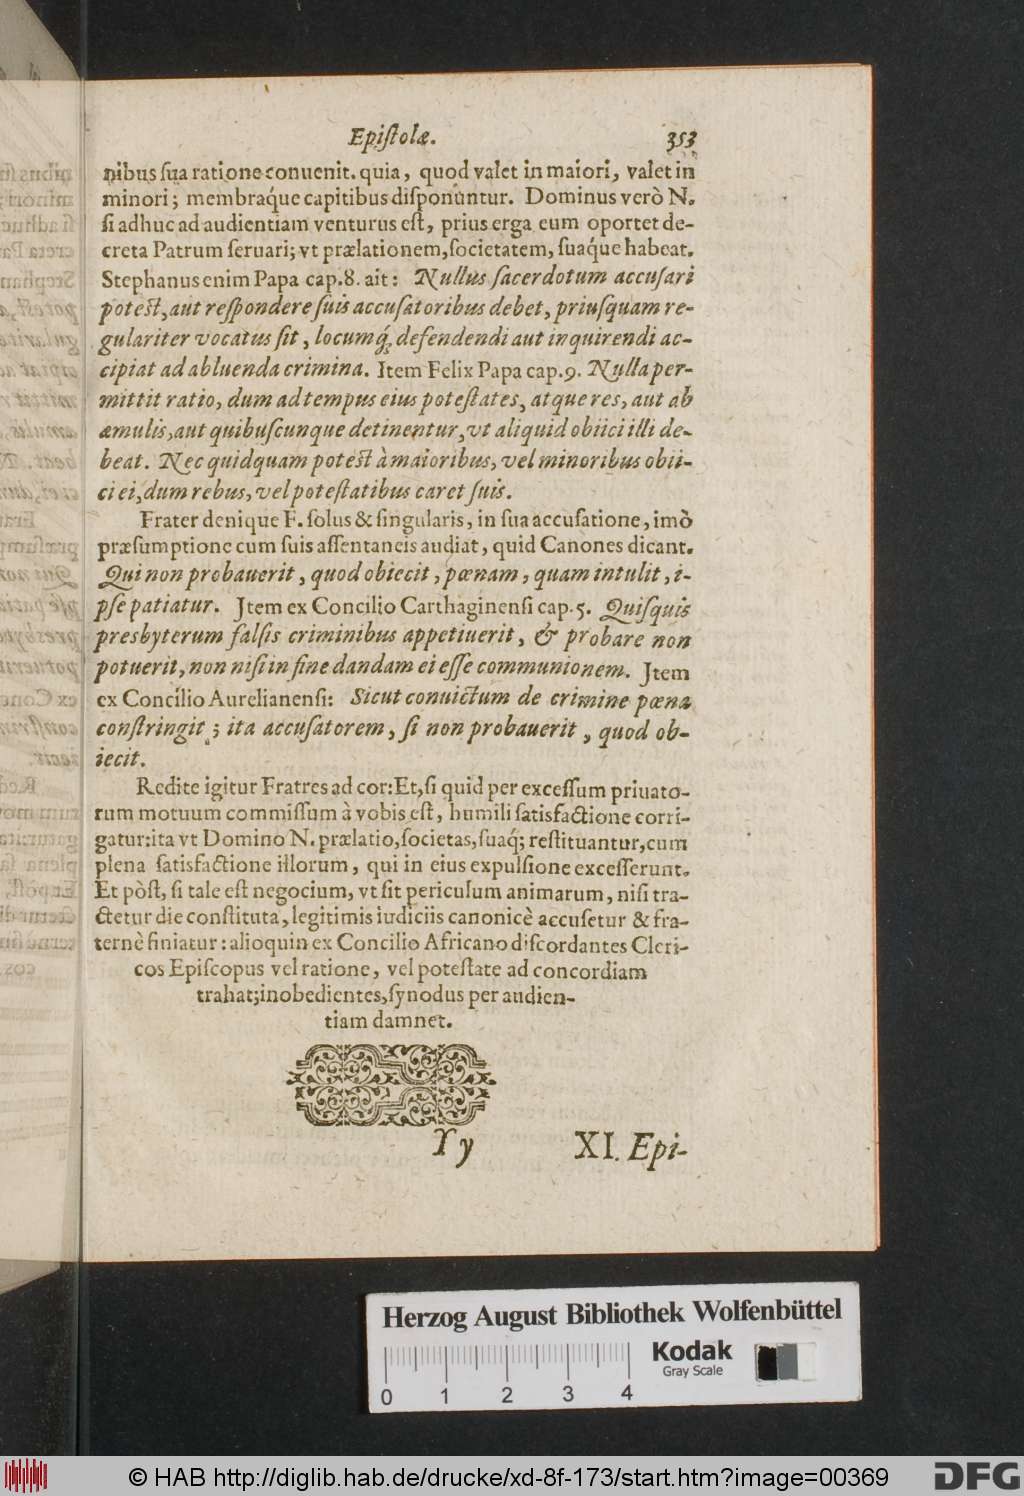 Epiſtolæ. 353
nibus ſua ratione conuenit. quia, quod valet in maiori, valet in
minori; membraq́ue capitibus diſponuntur. Dominus verò N.
ſi adhuc ad audientiam venturus eſt, prius erga eum oportet de-
creta Patrum ſeruari; vt prælationem, ſocietatem, ſuaq́ue habeat.
Stephanus enim Papa cap. 8. ait: Nullus ſacerdotum accuſari
poteſt, aut reſpondere ſuis accuſatoribus debet, priuſquam re-
gulariter vocatus ſit, locumq́; defendendi aut inquirendi ac-
cipiat ad abluenda crimina. Item Felix Papa cap. 9. Nulla per-
mittit ratio, dum ad tempus eius poteſtates, atque res, aut ab
æmulis, aut quibuſcunque detinentur, vt aliquid obiici illi de-
beat. Nec quidquam poteſt à maioribus, vel minoribus obii-
ci ei, dum rebus, vel poteſtatibus caret ſuis.
Frater denique F. ſolus & ſingularis, in ſua accuſatione, imò
præſumptione cum ſuis aſſentaneis audiat, quid Canones dicant.
Qui non probauerit, quod obiecit, pœnam, quam intulit, i-
pſe patiatur. Item ex Concilio Carthaginenſi cap. 5. Quiſquis
presbyterum falſis criminibus appetiuerit, & probare non
potuerit, non niſi in fine dandam ei eſſe communionem. Item
ex Concilio Aurelianenſi: Sicut conuictum de crimine pœna
conſtringit; ita accuſatorem, ſi non probauerit, quod ob-
iecit.
Redite igitur Fratres ad cor: Et, ſi quid per exceſſum priuato-
rum motuum commiſſum à vobis eſt, humili ſatisfactione corri-
gatur: ita vt Domino N. prælatio, ſocietas, ſuaq́; reſtituantur, cum
plena ſatisfactione illorum, qui in eius expulſione exceſſerunt.
Et pòſt, ſi tale eſt negocium, vt ſit periculum animarum, niſi tra-
ctetur die conſtituta, legitimis iudiciis canonicè accuſetur & fra-
ternè finiatur: alioquin ex Concilio Africano diſcordantes Cleri-
cos Epiſcopus vel ratione, vel poteſtate ad concordiam
trahat; inobedientes, ſynodus per audien-
tiam damnet.
Yy XI. Epi-
Herzog August Bibliothek Wolfenbüttel
Kodak
Gray Scale
0 1 2 3 4
© HAB http://diglib.hab.de/drucke/xd-8f-173/start.htm?image=00369
DFG